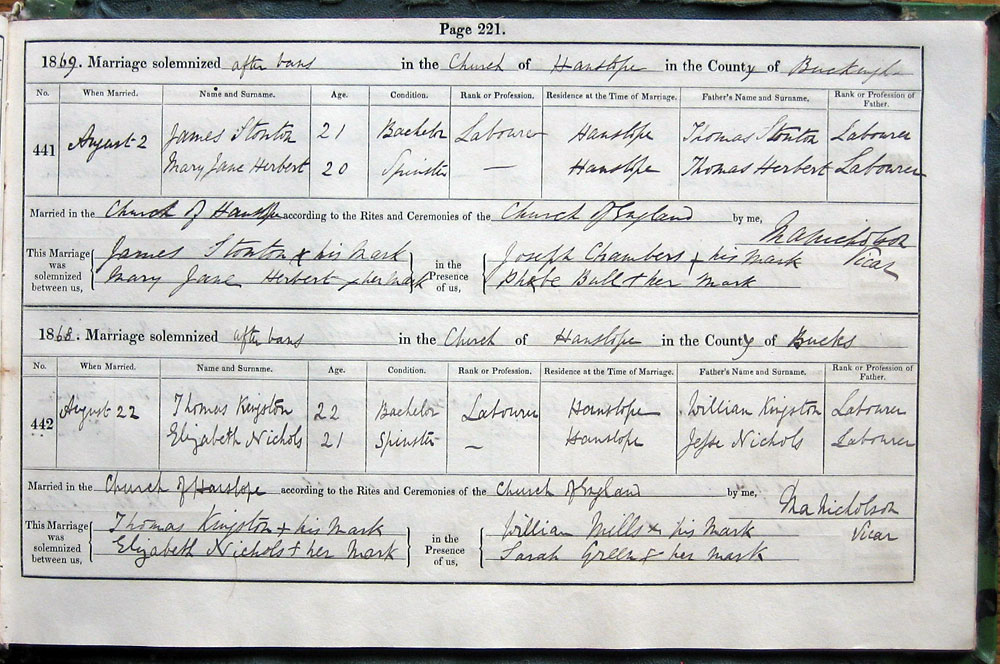 Page 221.
1869. Marriage solemnized after bans in the Church of Hanslope in the County of Buckingh
No. When Married. Name and Surname. Age. Condition. Rank or Profession. Residence at the Time of Marriage. Father's Name and Surname. Rank or Profession of Father.
441 August 2 James Stonton 21 Bachelor Labourer Hanslope Thomas Stonton Labourer
Mary Jane Herbert 20 Spinster — Hanslope Thomas Herbert Labourer
Married in the Church of Hanslope according to the Rites and Ceremonies of the Church of England by me,
This Marriage was solemnized between us, James Stonton x his Mark in the Presence of us, Joseph Chambers + his Mark Vicar
Mary Jane Herbert x her Mark Phebe Bull + her Mark
1868. Marriage solemnized after bans in the Church of Hanslope in the County of Bucks
No. When Married. Name and Surname. Age. Condition. Rank or Profession. Residence at the Time of Marriage. Father's Name and Surname. Rank or Profession of Father.
442 August 22 Thomas Kingston 22 Bachelor Labourer Hanslope William Kingston Labourer
Elizabeth Nichols 21 Spinster — Hanslope Jesse Nichols Labourer
Married in the Church of Hanslope according to the Rites and Ceremonies of the Church of England by me, Nicholson
This Marriage was solemnized between us, Thomas Kingston + his Mark in the Presence of us, William Mills x his Mark Vicar
Elizabeth Nichols + her Mark Sarah Green + her Mark